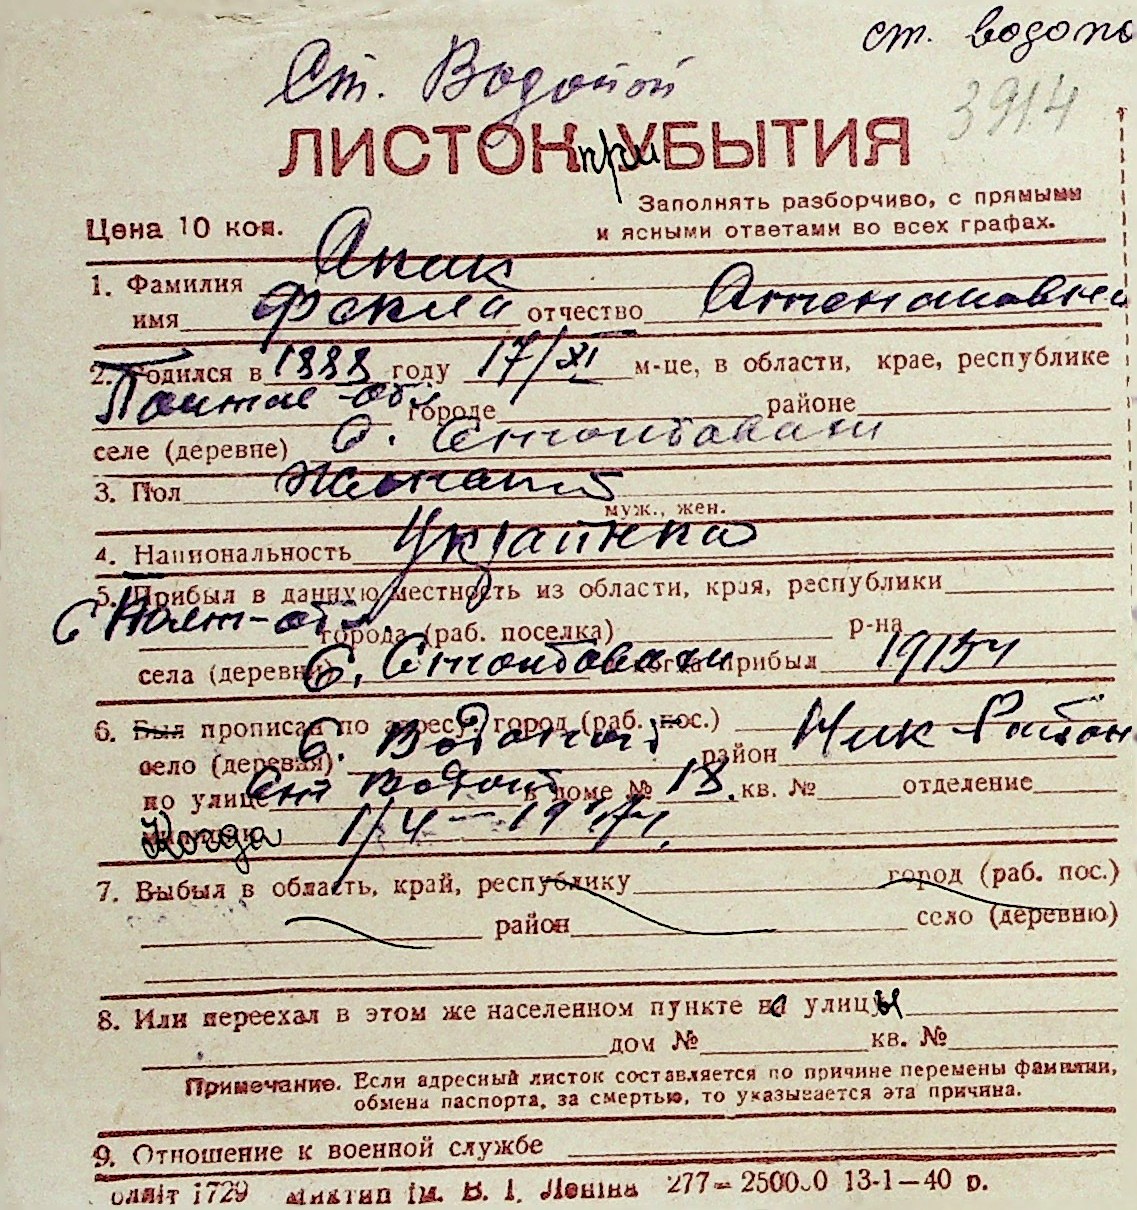 ст. водопо
Ст. Водопой
3914
ЛИСТОК при УБЫТИЯ
Заполнять разборчиво, с прямыми
и ясными ответами во всех графах.
Цена 10 коп.
1. Фамилия
имя Фекла отчество
2. Родился в 1888 году 17/XI м-це, в области, крае, республике
городе районе
селе (деревне) С.
3. Пол
муж., жен.
4. Национальность Украинка
5. Прибыл в данную местность из области, края, республики
С Полт-обл. города (раб. поселка) р-на
села (деревни) С. когда прибыл 1915г
6. Был прописан по адресу: город (раб. пос.)
село (деревня) С. Водопой район Ник-Район
по улице Ст Водопой в доме № 18. кв. № отделение
Когда 1/4-
7. Выбыл в область, край, республику город (раб. пос.)
район село (деревню)
8. Или переехал в этом же населенном пункте с улицы
дом № кв. №
Примечание. Если адресный листок составляется по причине перемены фамилии,
обмена паспорта, за смертью, то указывается эта причина.
9. Отношение к военной службе
1729 ім. В. І. Леніна 277— 13-1—40 р.